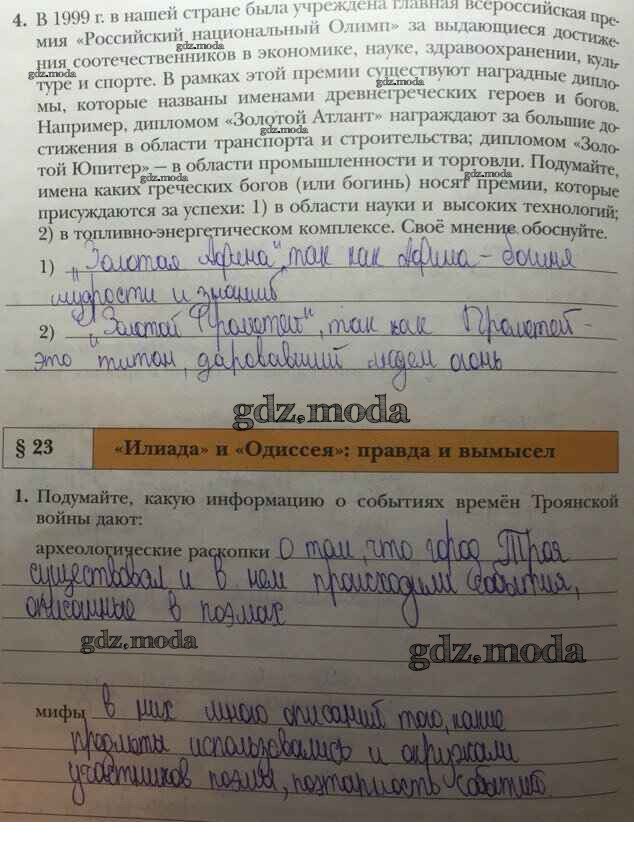 4. В 1999 г. в нашей стране была учреждена главная всероссийская пре-
мия «Российский национальный Олимп» за выдающиеся достиже-
ния соотечественников в экономике, науке, здравоохранении, куль-
gdz.moda
gdz.moda
туре и спорте. В рамках этой премии существуют наградные дипло-
gdz.moda
мы, которые названы именами древнегреческих героев и богов.
Например, дипломом «Золотой Атлант» награждают за большие до-
gdz.moda
стижения в области транспорта и строительства; дипломом «Золо-
той Юпитер» — в области промышленности и торговли. Подумайте,
gdz.moda
gdz.moda
имена каких греческих богов (или богинь) носят премии, которые
присуждаются за успехи: 1) в области науки и высоких технологий;
2) в топливно-энергетическом комплексе. Своё мнение обоснуйте.
1) „Золотая Афина", так как Афина - богиня
мудрости и знаний
2) „Золотой Прометей", так как Прометей -
это титан, даровавший людем огонь
gdz.moda
§ 23 «Илиада» и «Одиссея»: правда и вымысел
1. Подумайте, какую информацию о событиях времён Троянской
войны дают:
археологические раскопки О том, что город Троя
существовал и в нем происходили события,
описанные в поэмах
gdz.moda
gdz.moda
мифы в них много описаний того, какие
предметы использовались и окружали
участников поэмы, поэтапность событий